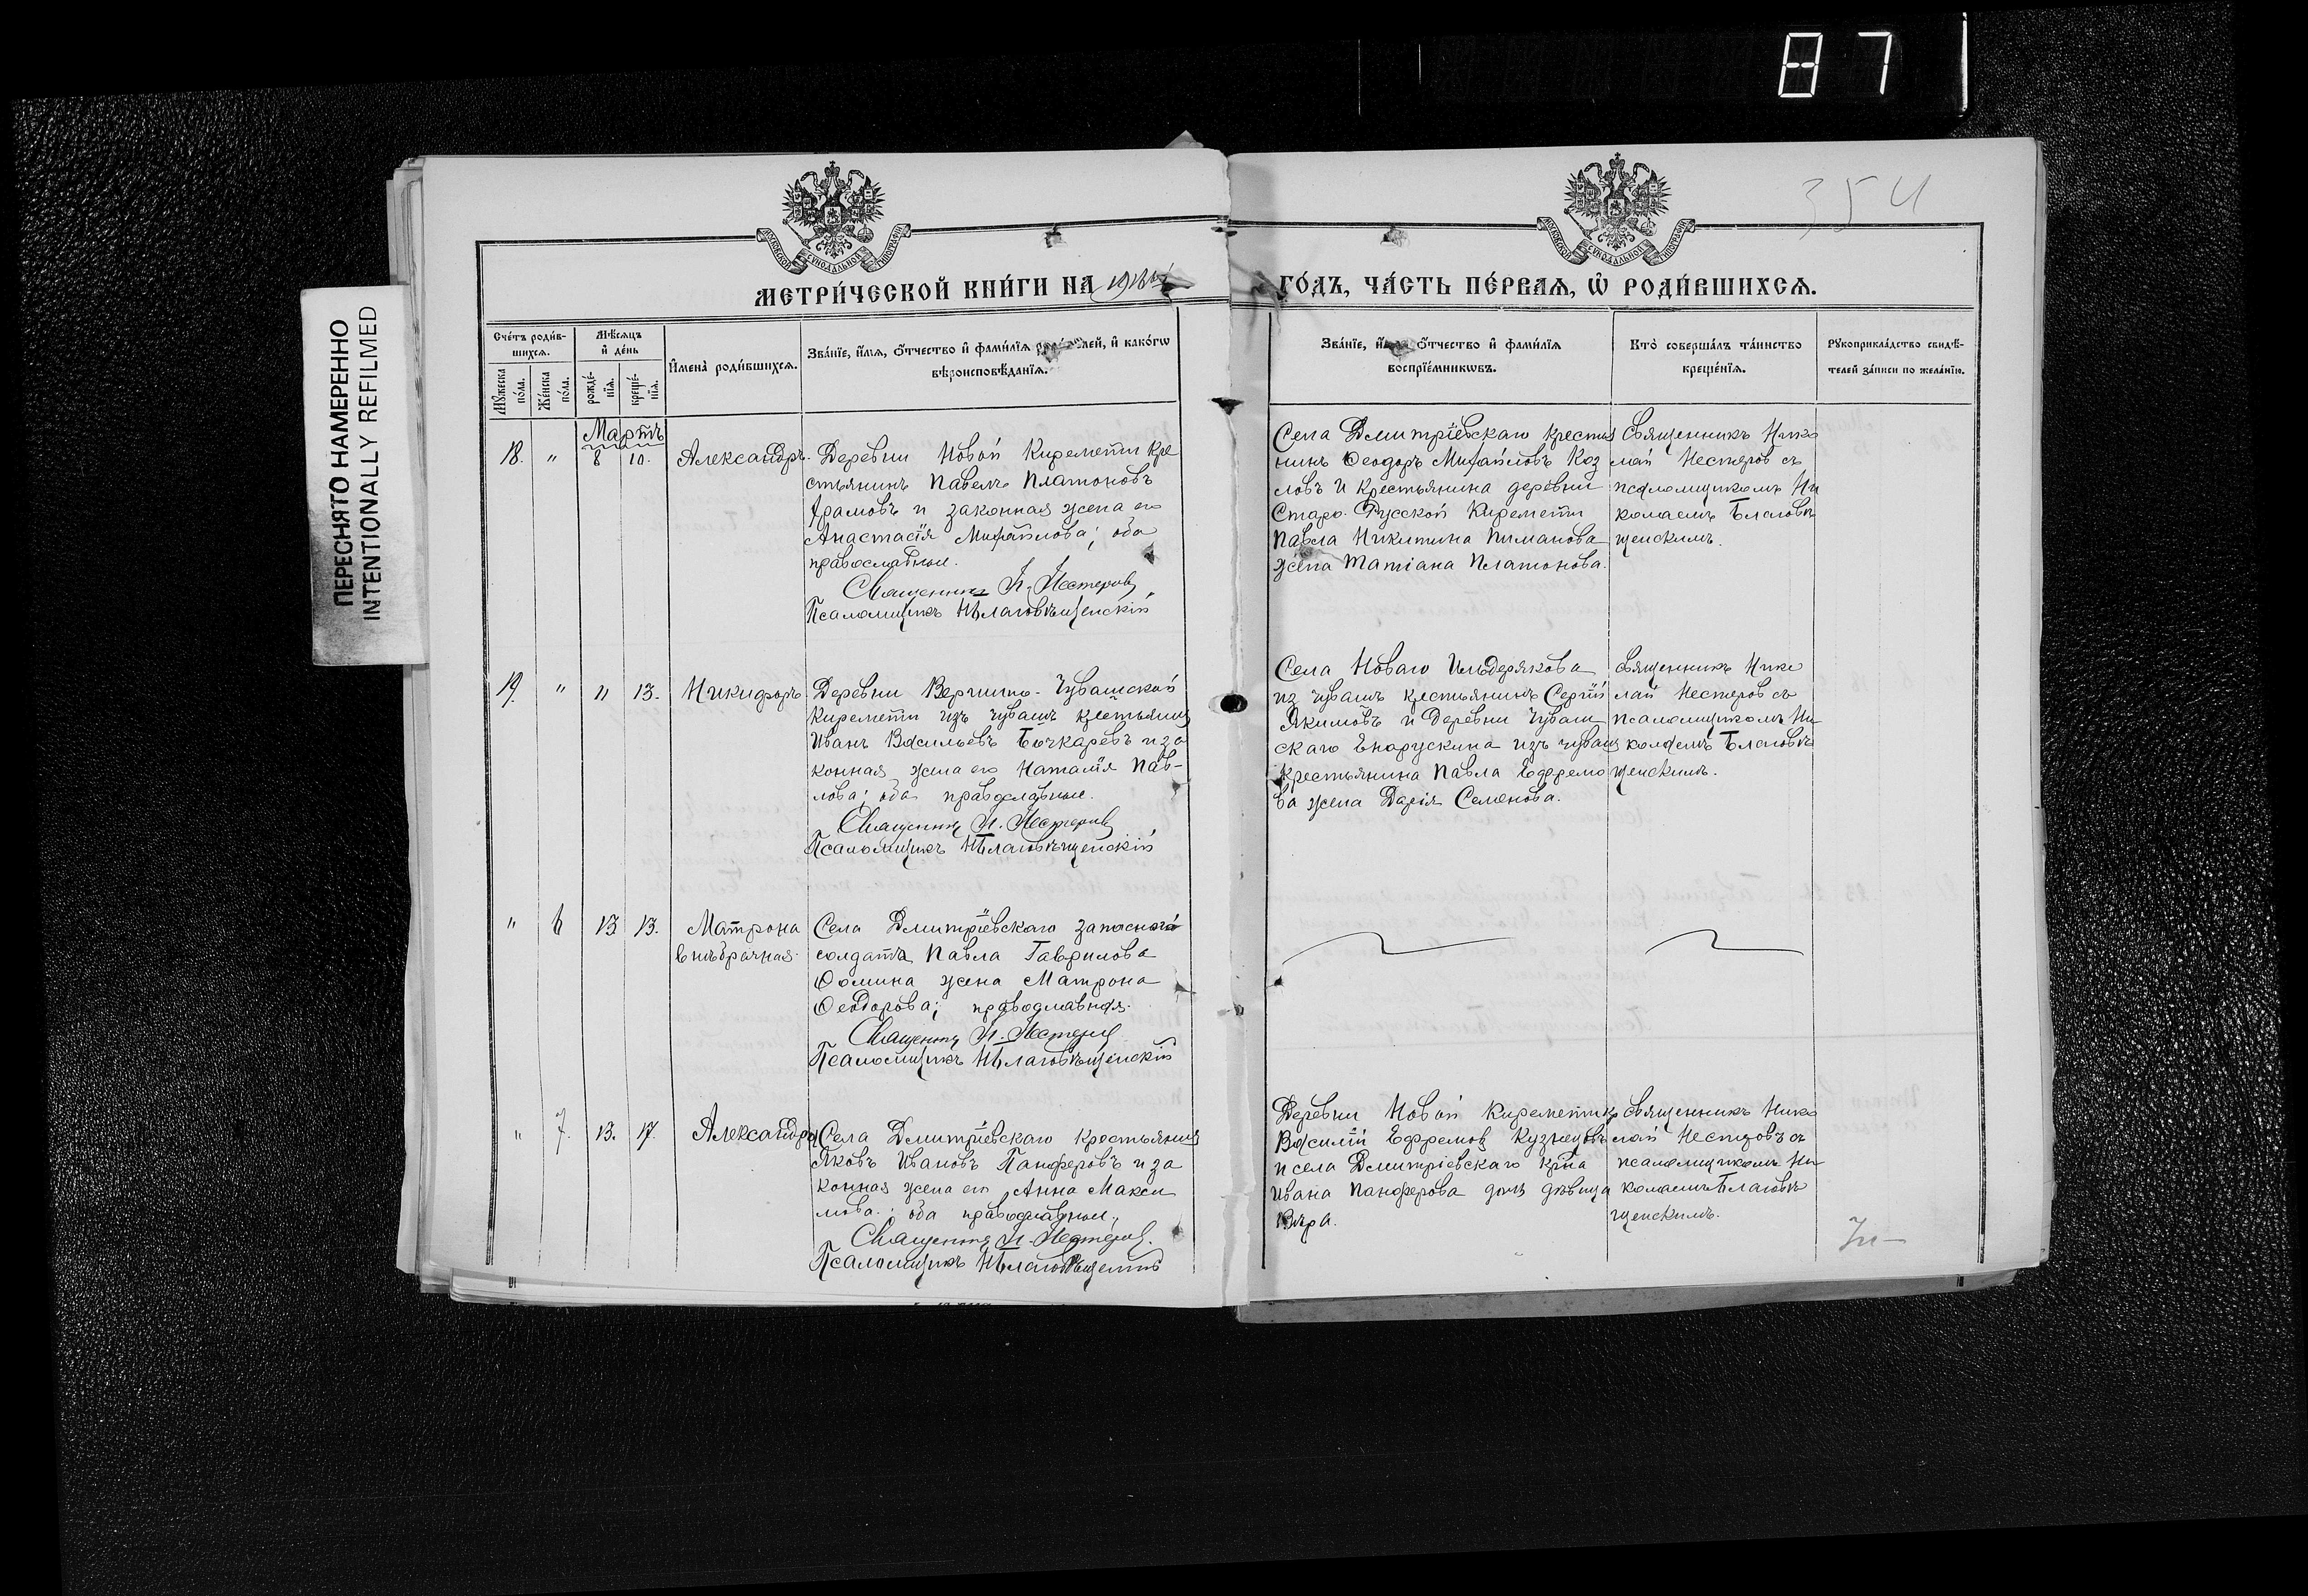 87
ПЕРЕСНЯТО НАМЕРЕННО
INTENTIONALLY REFILMED
354
МОСКОВСКОЙ СУНОДАЛЬНОЙ ТИПОГРАФІИ
МОСКОВСКОЙ СУНОДАЛЬНОЙ ТИПОГРАФІИ
МЕТРИ́ЧЕСКОЙ КНИ́ГИ НА
ГО́ДЪ, ЧА́СТЬ ПЕ́РВАѦ, Ѡ҆ РОДИ́ВШИХСѦ.
Сче́тъ роди́в-
шихсѧ.
Мꙋ́жеска по́ла.
Же́нска по́ла.
Мѣ́сѧцъ
и҆ де́нь
рожде́-
нїѧ.
креще́-
нїѧ.
И҆мена̀ роди́вшихсѧ.
Зва́нїе, и҆́мѧ, ѻ҆́тчество и҆ фами́лїѧ роди́телей, и҆ како́гѡ
вѣроисповѣ́данїѧ.
Зва́нїе, и҆́мѧ, ѻ҆́тчество и҆ фами́лїѧ
воспрїе́мникѡвъ.
Кто̀ соверша́лъ та́инство
креще́нїѧ.
Рꙋкоприкла́дство свидѣ́-
телей за́писи по жела́нїю.
Мартъ
18. " 8 10. Александръ.
Деревни Новой Киремети кре
стьянинъ Павелъ Платоновъ
и законная жена его
Анастасія Михайлова; оба
православные.
Священникъ Н. Нестеровъ
Псаломщикъ Н Благовѣщенскій
Села Дмитріевскаго крестья
нинъ Ѳеодоръ Михайловъ Коз
ловъ и крестьянина деревни
Старо-Русской Киремети
Павла Никитина Пиманова
жена Татіана Платонова.
Священникъ Нико
лай Нестеровъ съ
псаломщикомъ Ни
колаемъ Благовѣ
щенскимъ.
19. " 11 13. Никифоръ.
Деревни Вершино-Чувашской
Киремети изъ чувашъ крестьянинъ
Иванъ Васильевъ Бочкаревъ и за
конная жена его Наталія Пав-
лова; оба православные.
Священникъ Н. Нестеровъ
Псаломщикъ Н Благовѣщенскій
Села Новаго Ильдерякова
из чувашъ крестьянинъ Сергій
Якимовъ и деревни Чуваш
скаго Енорускина изъ чувашъ
крестьянина Павла Ефремо
ва жена Дарія Семенова.
Священникъ Нико
лай Нестеровъ съ
псаломщикомъ Ни
колаемъ Благовѣ
щенскимъ.
" 6 13 13. Матрона
внѣбрачная.
Села Дмитріевскаго запасного
солдата Павла Гаврилова
Ѳомина жена Матрона
Ѳеодорова; православная.
Священникъ Н. Нестеровъ
Псаломщикъ Н Благовѣщенскій
" 7. 13. 17. Александра
Села Дмитріевскаго крестьянинъ
Яковъ Ивановъ Панферовъ и за
конная жена его Анна Макси
мова.; оба православные.
Священникъ Н. Нестеровъ.
Псаломщикъ Н Благовѣщенскій
Деревни Новой Киремети
Василій Ефремовъ Кузнецовъ
и села Дмитріевскаго кр-на
Ивана Панферова дочь дѣвица
Вѣра.
Священникъ Нико
лай Нестеровъ съ
псаломщикомъ Ни
колаемъ Благовѣ
щенскимъ.